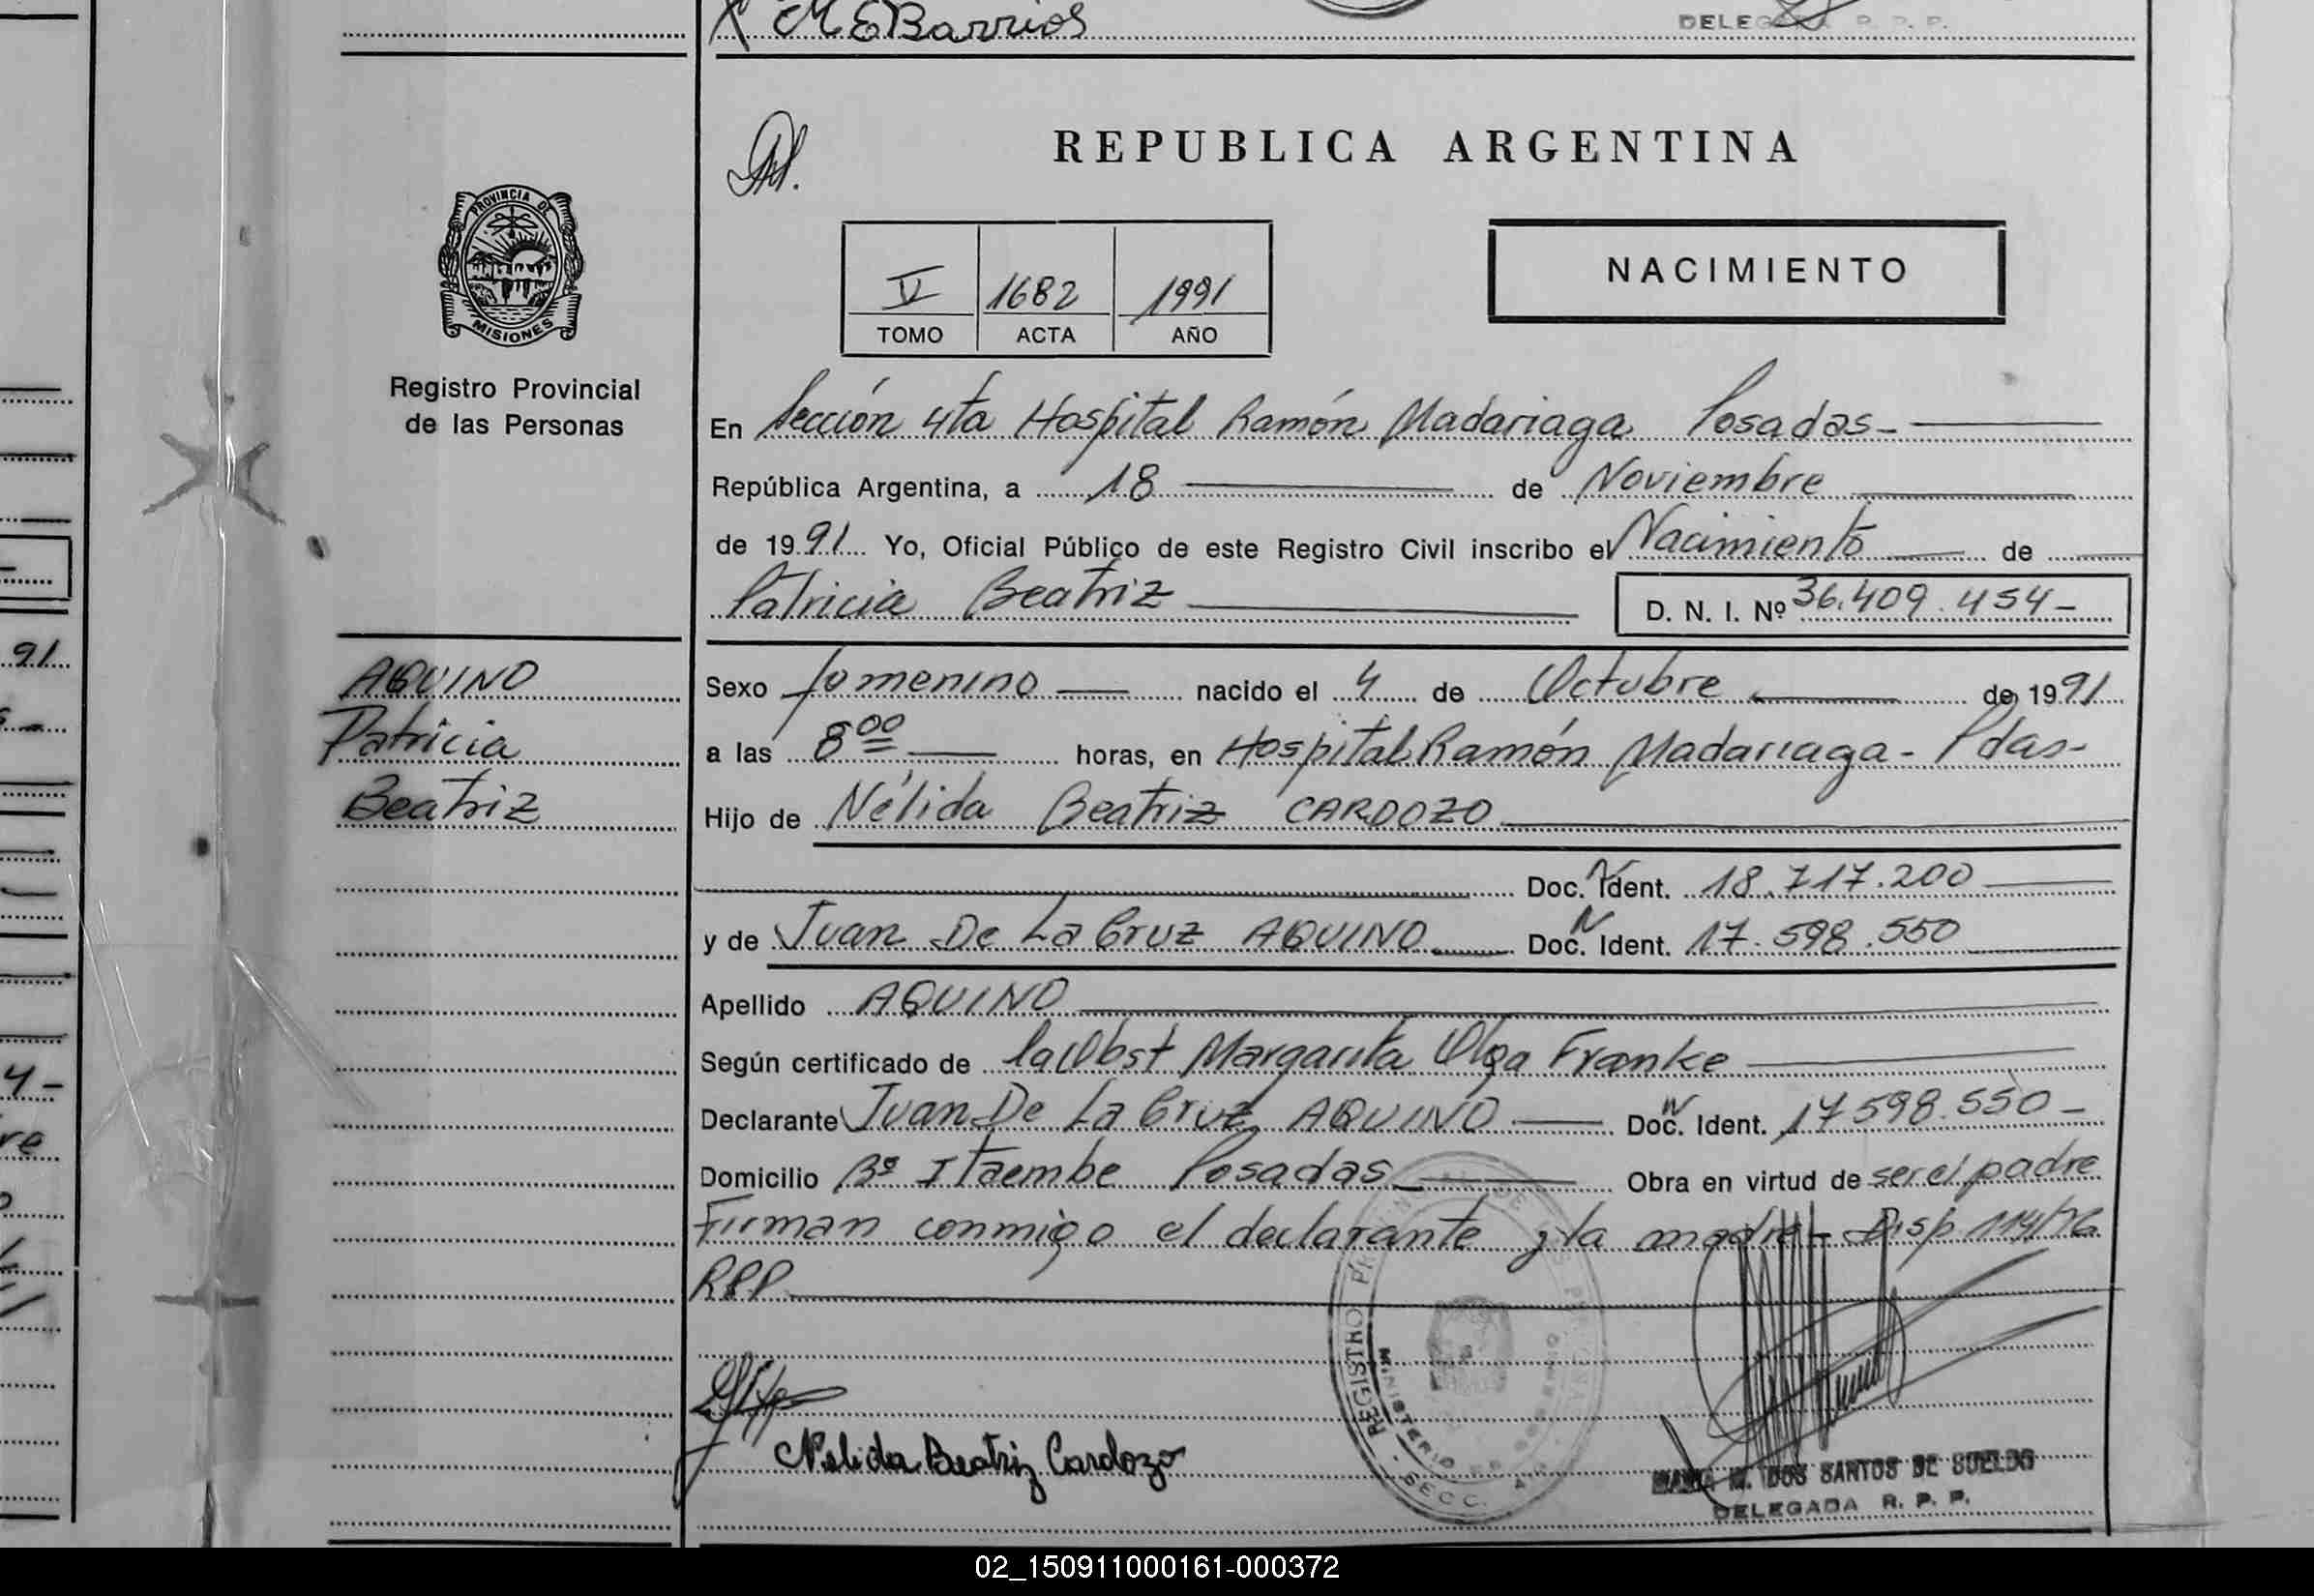 M E Barrios
DELEGADA R. P. P.
REPUBLICA ARGENTINA
PROVINCIA DE
MISIONES
Registro Provincial
de las Personas
NACIMIENTO
V 1682 1991
TOMO ACTA AÑO
En Sección 4ta Hospital Ramón Madariaga Posadas-
República Argentina, a 18 de Noviembre
de 1991 Yo, Oficial Público de este Registro Civil inscribo el Nacimiento de
Patricia Beatriz
D. N. I. Nº 36.409.454-
AQUINO
Patricia
Beatriz
Sexo femenino nacido el 4 de Octubre de 1991
a las 8 00 horas, en Hospital Ramón Madariaga - Pdas-
Hijo de Nélida Beatriz CARDOZO
Doc. N Ident. 18.717.200
y de Juan De La Cruz AQUINO Doc. N Ident. 17.598.550
Apellido AQUINO
Según certificado de la Obst Margarita Olga Franke
Declarante Juan De La Cruz AQUINO Doc. N Ident. 17598.550-
Domicilio Bº Itaembe Posadas- Obra en virtud de ser el padre
Firman conmigo el declarante y la madre- Disp 114/76
RPP
Nelida Beatriz Cardozo
REGISTRO
MINISTERIO
SECC.
M. DOS SANTOS DE SUELDO
DELEGADA R. P. P.
91
4-
re
02_150911000161-000372